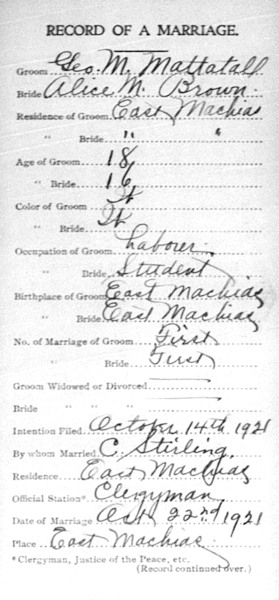 RECORD OF A MARRIAGE.
Groom Geo. M. Mattatall
Bride Alice M. Brown
Residence of Groom East Machias
" Bride " "
Age of Groom 18
" Bride 16
Color of Groom
" Bride
Occupation of Groom Laborer
" Bride Student
Birthplace of Groom East Machias
" Bride East Machias
No. of Marriage of Groom First
" Bride First
Groom Widowed or Divorced
Bride " " "
Intention Filed October 14th 1921
By whom Married C. Stirling
Residence East Machias
Official Station* Clergyman
Date of Marriage Oct 22nd 1921
Place East Machias
*Clergyman, Justice of the Peace, etc.
(Record continued over.)